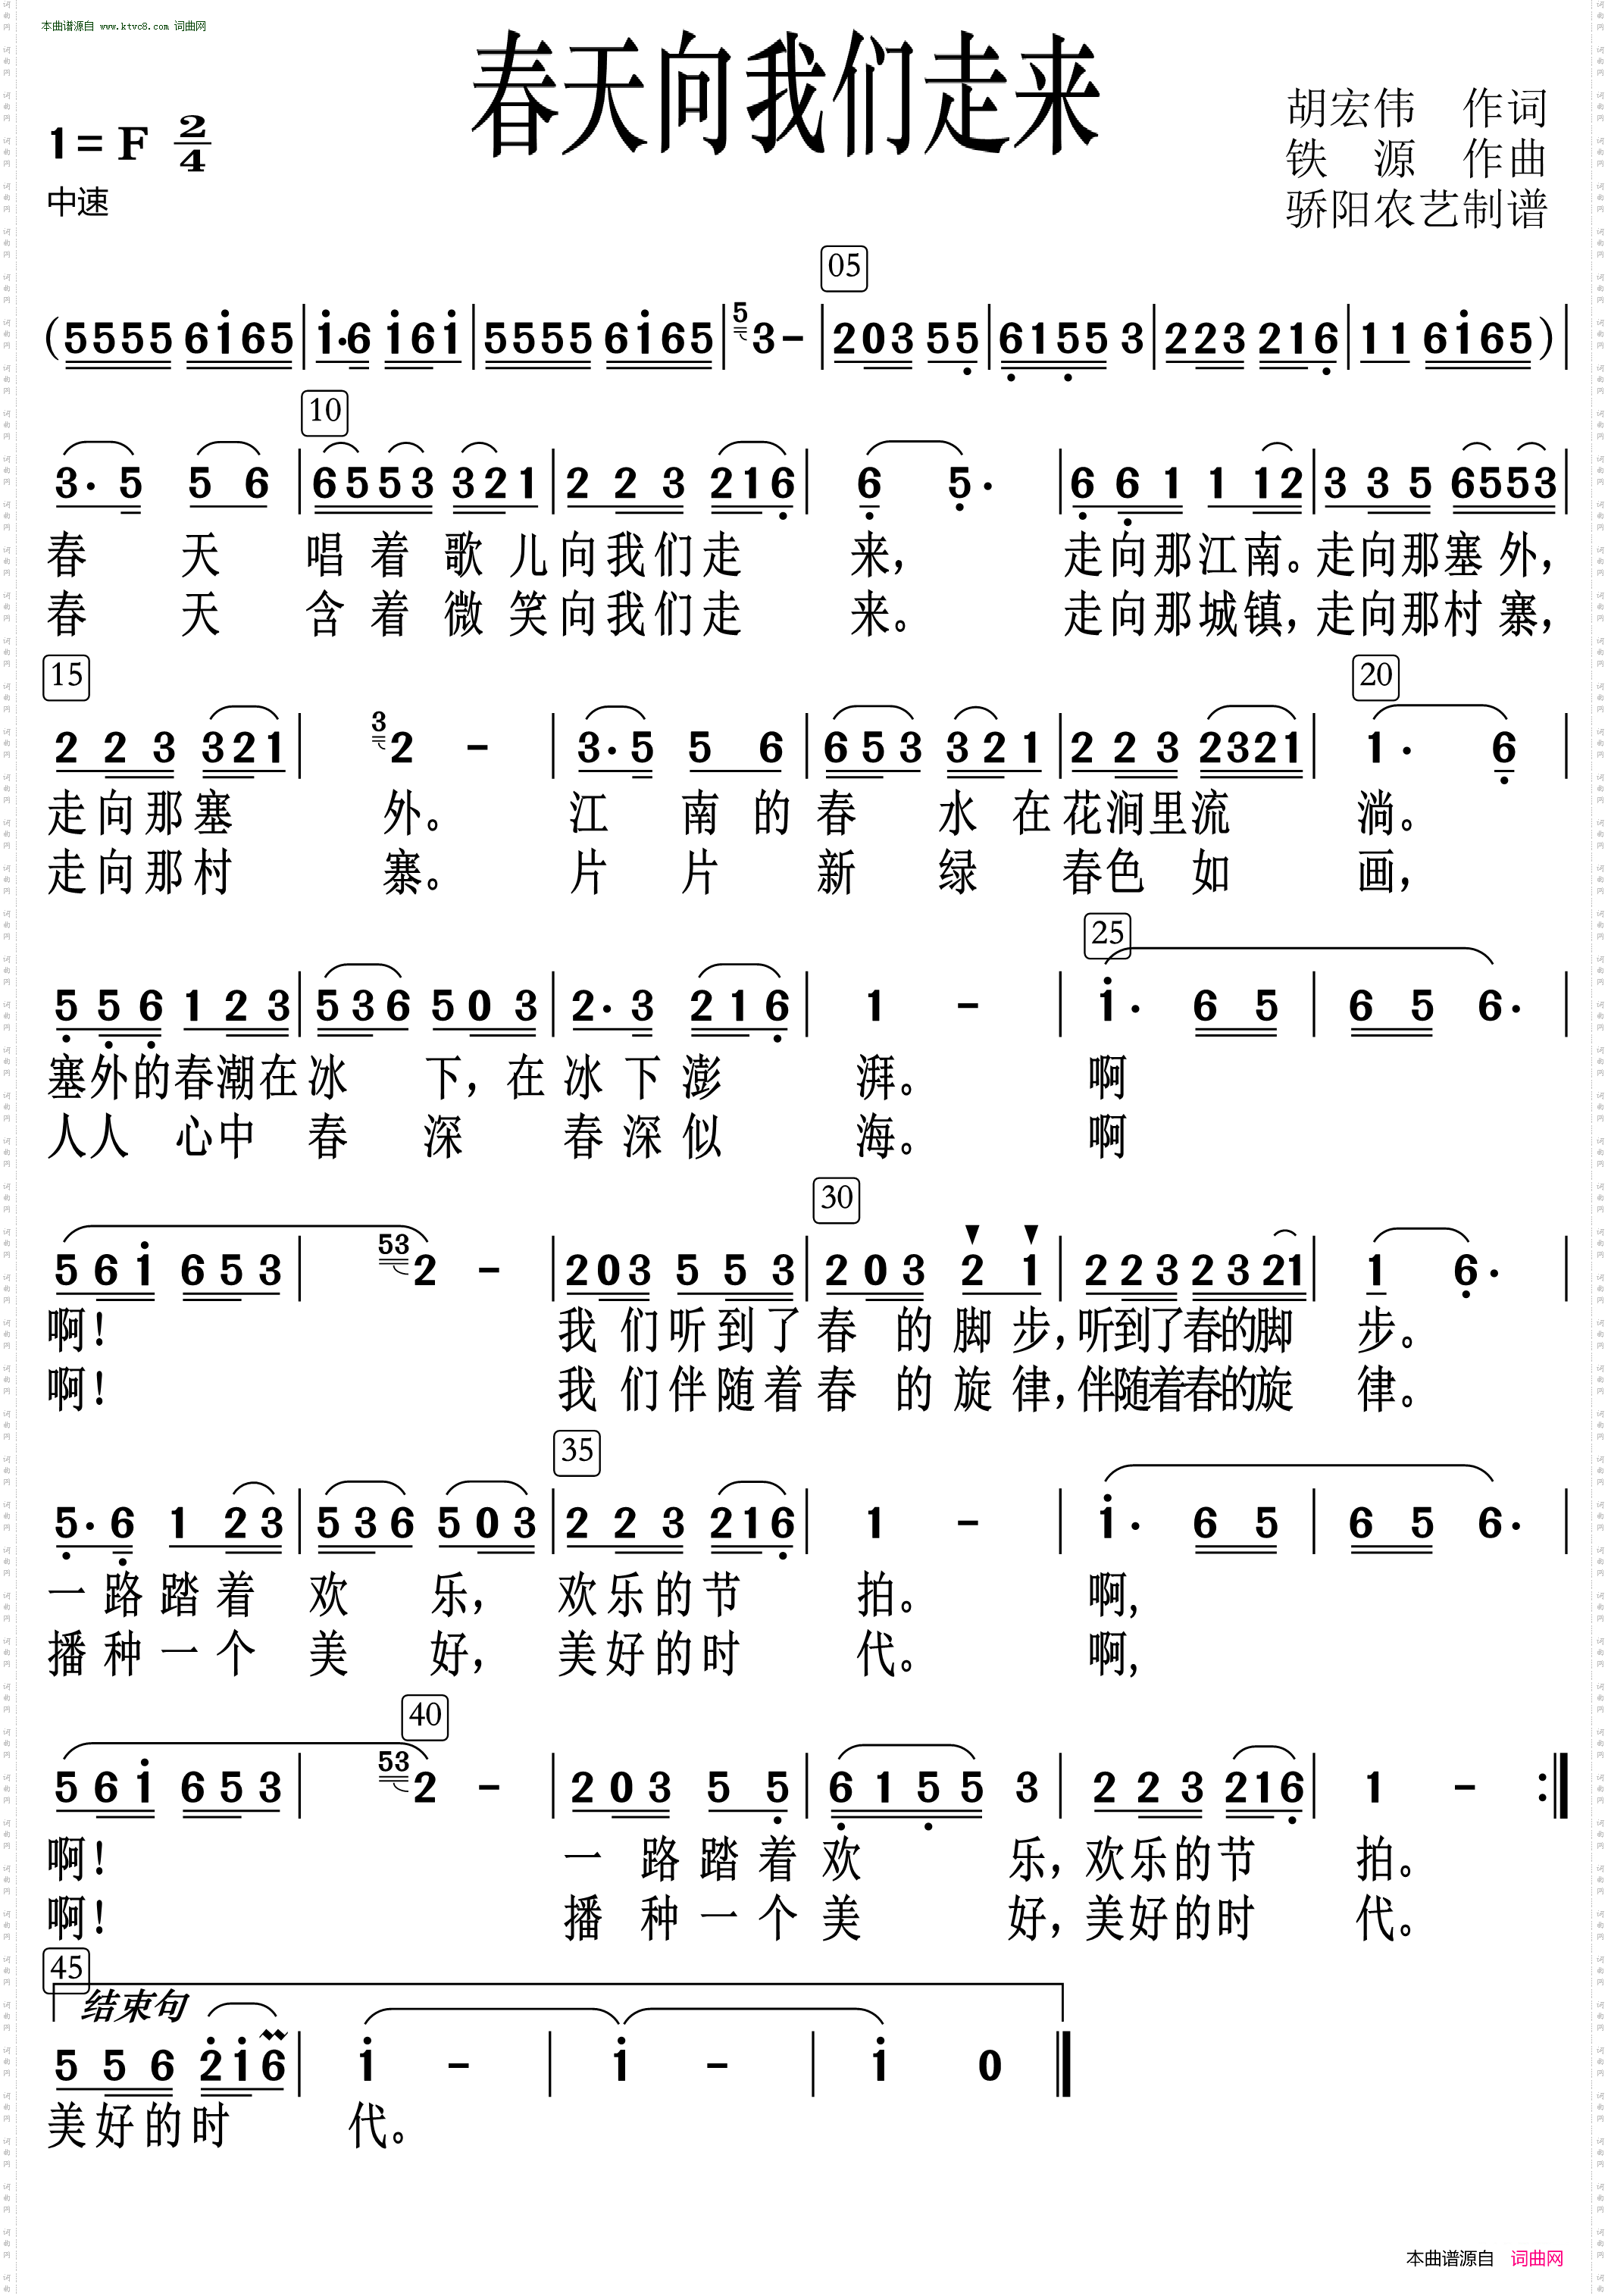 本曲谱源自 www.ktvc8.com 词曲网
春天向我们走来
胡宏伟 作词
1=F 2/4
铁 源 作曲
中速
骄阳农艺制谱
05
(5555 6165 1·6 161 5555 6165 5 3- 203 55 6155 3 223 216 11 6165)
10
3·5 56 6553 321 2 2 3 216 6 5· 6 6 1 1 12 3 3 5 6553
春 天 唱 着 歌 儿 向我们走 来, 走向那江南。走向那塞 外,
春 天 含 着 微 笑 向我们走 来。 走向那城镇,走向那村 寨,
15 20
2 2 3 321 3 2 - 3·5 5 6 6 5 3 3 2 1 2 2 3 2321 1· 6
走向那塞 外。 江 南 的 春 水 在 花涧里流 淌。
走向那村 寨。 片 片 新 绿 春色 如 画,
25
5 5 6 1 2 3 5 3 6 5 0 3 2· 3 2 1 6 1 - 1· 6 5 6 5 6·
塞外的春潮在 冰 下,在 冰 下 澎 湃。 啊
人人 心中 春 深 春 深 似 海。 啊
30
5 6 1 6 5 3 53 2 - 203 5 5 3 2 0 3 2 1 2 2 3 2 3 21 1 6·
啊! 我 们听到了 春 的 脚 步,听到了春的脚 步。
啊! 我 们伴随着 春 的 旋 律,伴随着春的旋 律。
35
5·6 1 2 3 5 3 6 5 0 3 2 2 3 216 1 - 1· 6 5 6 5 6·
一路踏着 欢 乐, 欢乐的节 拍。 啊,
播种一个 美 好, 美好的时 代。 啊,
40
5 6 1 6 5 3 53 2 - 2 0 3 5 5 6 1 5 5 3 2 2 3 216 1 -
啊! 一 路踏着 欢 乐,欢乐的节 拍。
啊! 播 种一个 美 好,美好的时 代。
45
结束句
5 5 6 216 1 - 1 - 1 0
美好的时 代。
本曲谱源自 词曲网